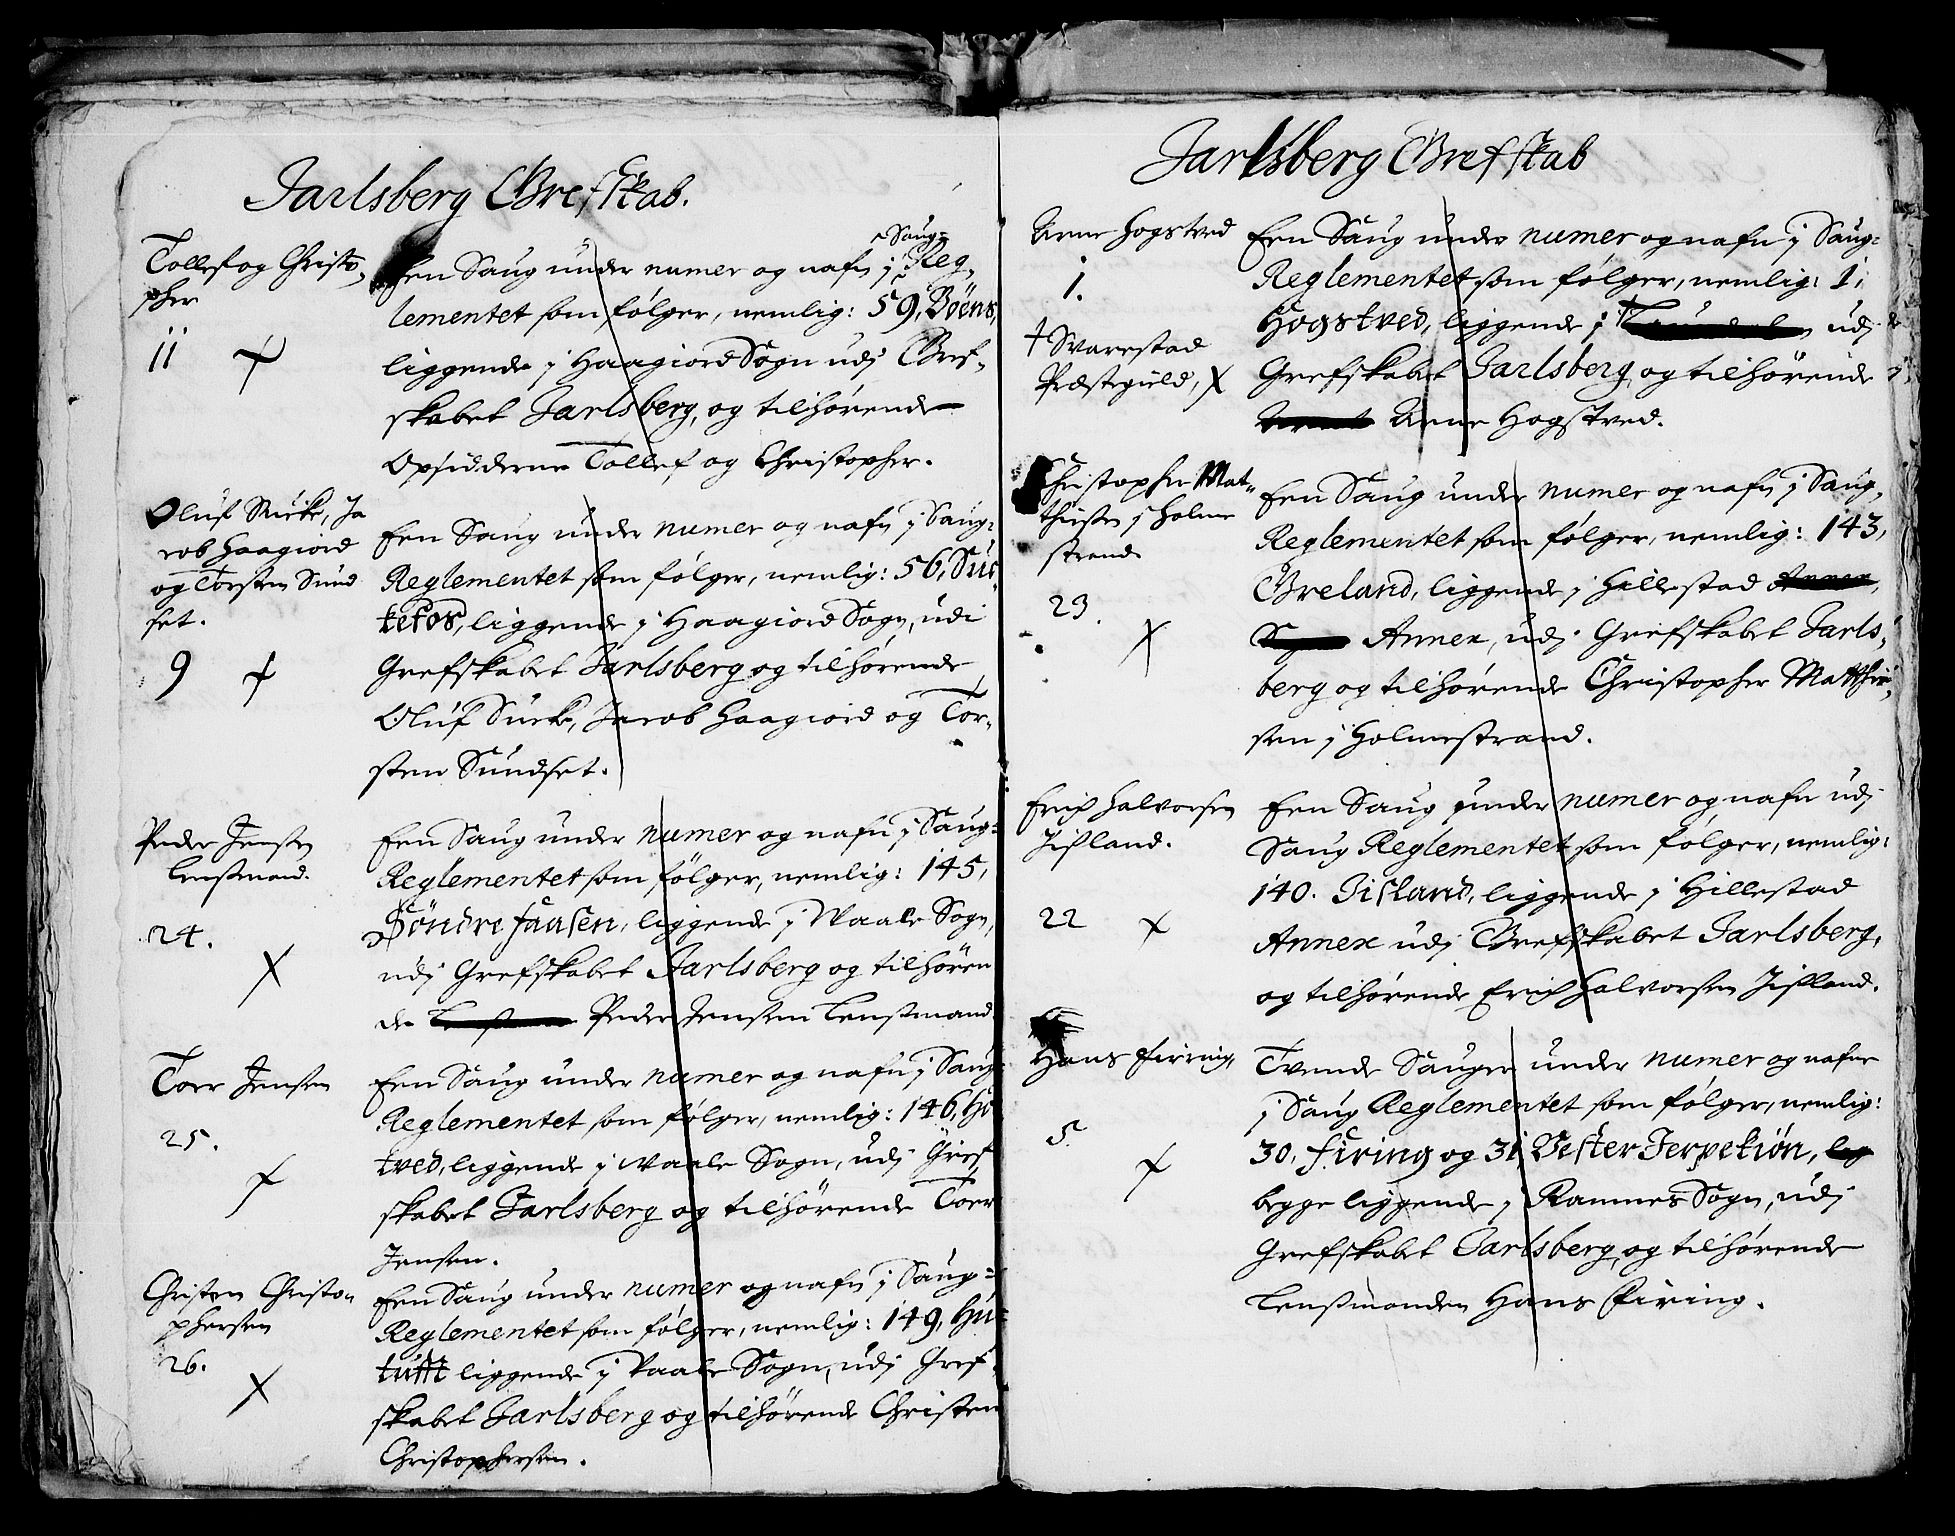 Jarlsberg Grefskab.
Tollef og Christo-
pher
11
Een Saug under numer og nafn j Saug= Reg-
lementet som følger, nemlig: 59, Böens,
liggende j Haagiord Sogn udj Gref-
skabet Jarlsberg, og tilhørende
Opsidderne Tollef og Christopher.
Oluf Sucke, Ja
cob Haagiord
og Torsten Sund
set.
9
Een Saug under numer og nafn j Saug=
Reglementet som følger, nemlig: 56, Suc-
kefos, liggende j Haagiord Sogn, udi
Grefskabet Jarlsberg og tilhørende
Oluf Sucke, Jacob Haagiord og Tor-
sten Sundset.
Peder Jensen
Lensmand.
24.
Een Saug under numer og nafn j Saug=
Reglementet som følger, nemlig: 145,
Söndre Faasen, liggende j Waale Sogn,
udj Grefskabet Jarlsberg og tilhøren
de Peder Jensen Lensmand
Toer Jensen
25.
Een Saug under numer og nafn j Saug=
Reglementet som følger, nemlig: 146, Ho
tved, liggende j Waale Sogn, udj Gref
skabet Jarlsberg og tilhørende Toer
Jensen.
Christen Christo-
phersen
26.
Een Saug under numer og nafn j Saug=
Reglementet som følger, nemlig: 149, Hu=
tufft liggende j Vaale Sogn, udj Gref
skabet Jarlsberg og tilhørende Christen
Christophersen.
Jarlsberg Grefskab
Arne Hogstved
1.
† Svarestad
Præstegield,
Een Saug under numer og nafn j Saug=
Reglementet som følger, nemlig: 1,
Hogstved, liggende j udj
Grefskabet Jarlsberg, og tilhørende
Arne Hogstved.
Christopher Mat-
thisen j Holme
strand
23.
Een Saug under numer og nafn j Saug,
Reglementet som følger, nemlig: 143,
Greland, liggende j Hillestad Annex,
Sogn Annex, udj Grefskabet Jarls-
berg og tilhørende Christopher Matthi-
sen j Holmestrand.
Erich Halvorsen
Jisland.
22
Een Saug under numer og nafn udj
Saug Reglementet som følger, nemlig:
140. Jisland, liggende j Hillestad
Annex udj Grefskabet Jarlsberg,
og tilhørende Erich Halvorsen Jisland.
Hans Firring,
5.
Tvende Sauger under numer og nafne
j Saug Reglementet som følger, nemlig:
30, Firing og 31 Vester Jerpekiøn, lig
begge liggende j Ramnes Sogn, udj
Grefskabet Jarlsberg, og tilhørende
Lensmanden Hans Firing.